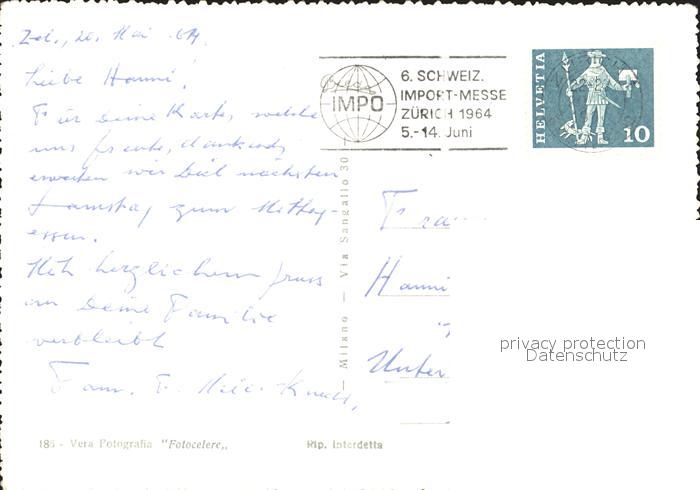 Zch., 20. Mai 64.
Liebe Hanni!
Für Deine Karte, welche
uns freute, dankend,
erwarten wir Dich nächsten
Samstag zum Mittag-
essen.
Mit herzlichem Gruss
an Deine Familie
verbleibt
Fam.
IMPO
6. SCHWEIZ.
IMPORT-MESSE
ZÜRICH 1964
5.-14. Juni
HELVETIA
10
Frau
Hanni
Unter
privacy protection
Datenschutz
Milano — Via Sangallo 30
186 - Vera Fotografia "Fotocelere„
Rip. interdetta